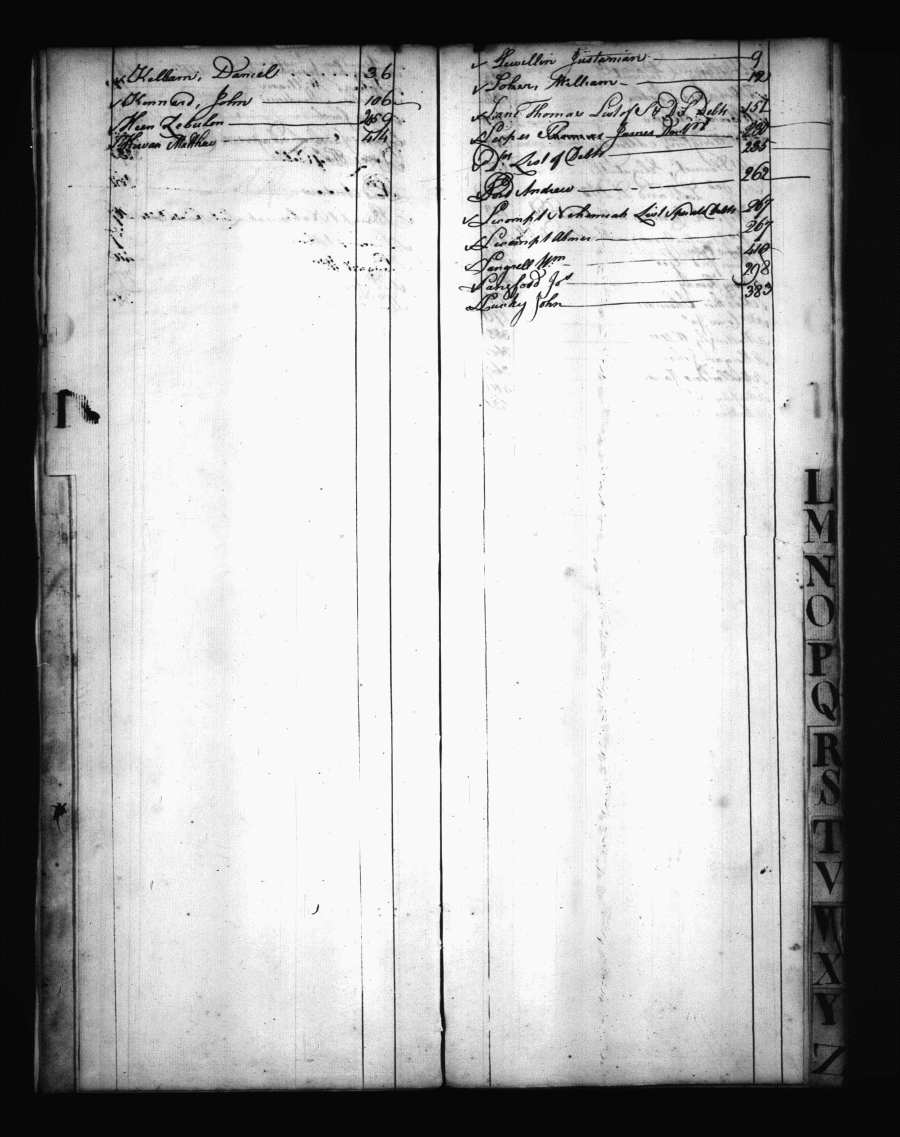 Kellam, Daniel 36
Kennard, John 106
Keen Zebulon 259
Kirwan Matthew 414
Lewellin Justinian 9
Loker, William 12
Lane Thomas List of Debts 151
Thomas James
Do List of Debts 235
Lord Andrew 262
Lecompt Nehemiah List Debts 267
Lecompt Abner 267
Langrell Wm 410
Lansford Jos 298
Lucky John 383
L
M
N
O
P
Q
R
S
T
V
W
X
Y
Z